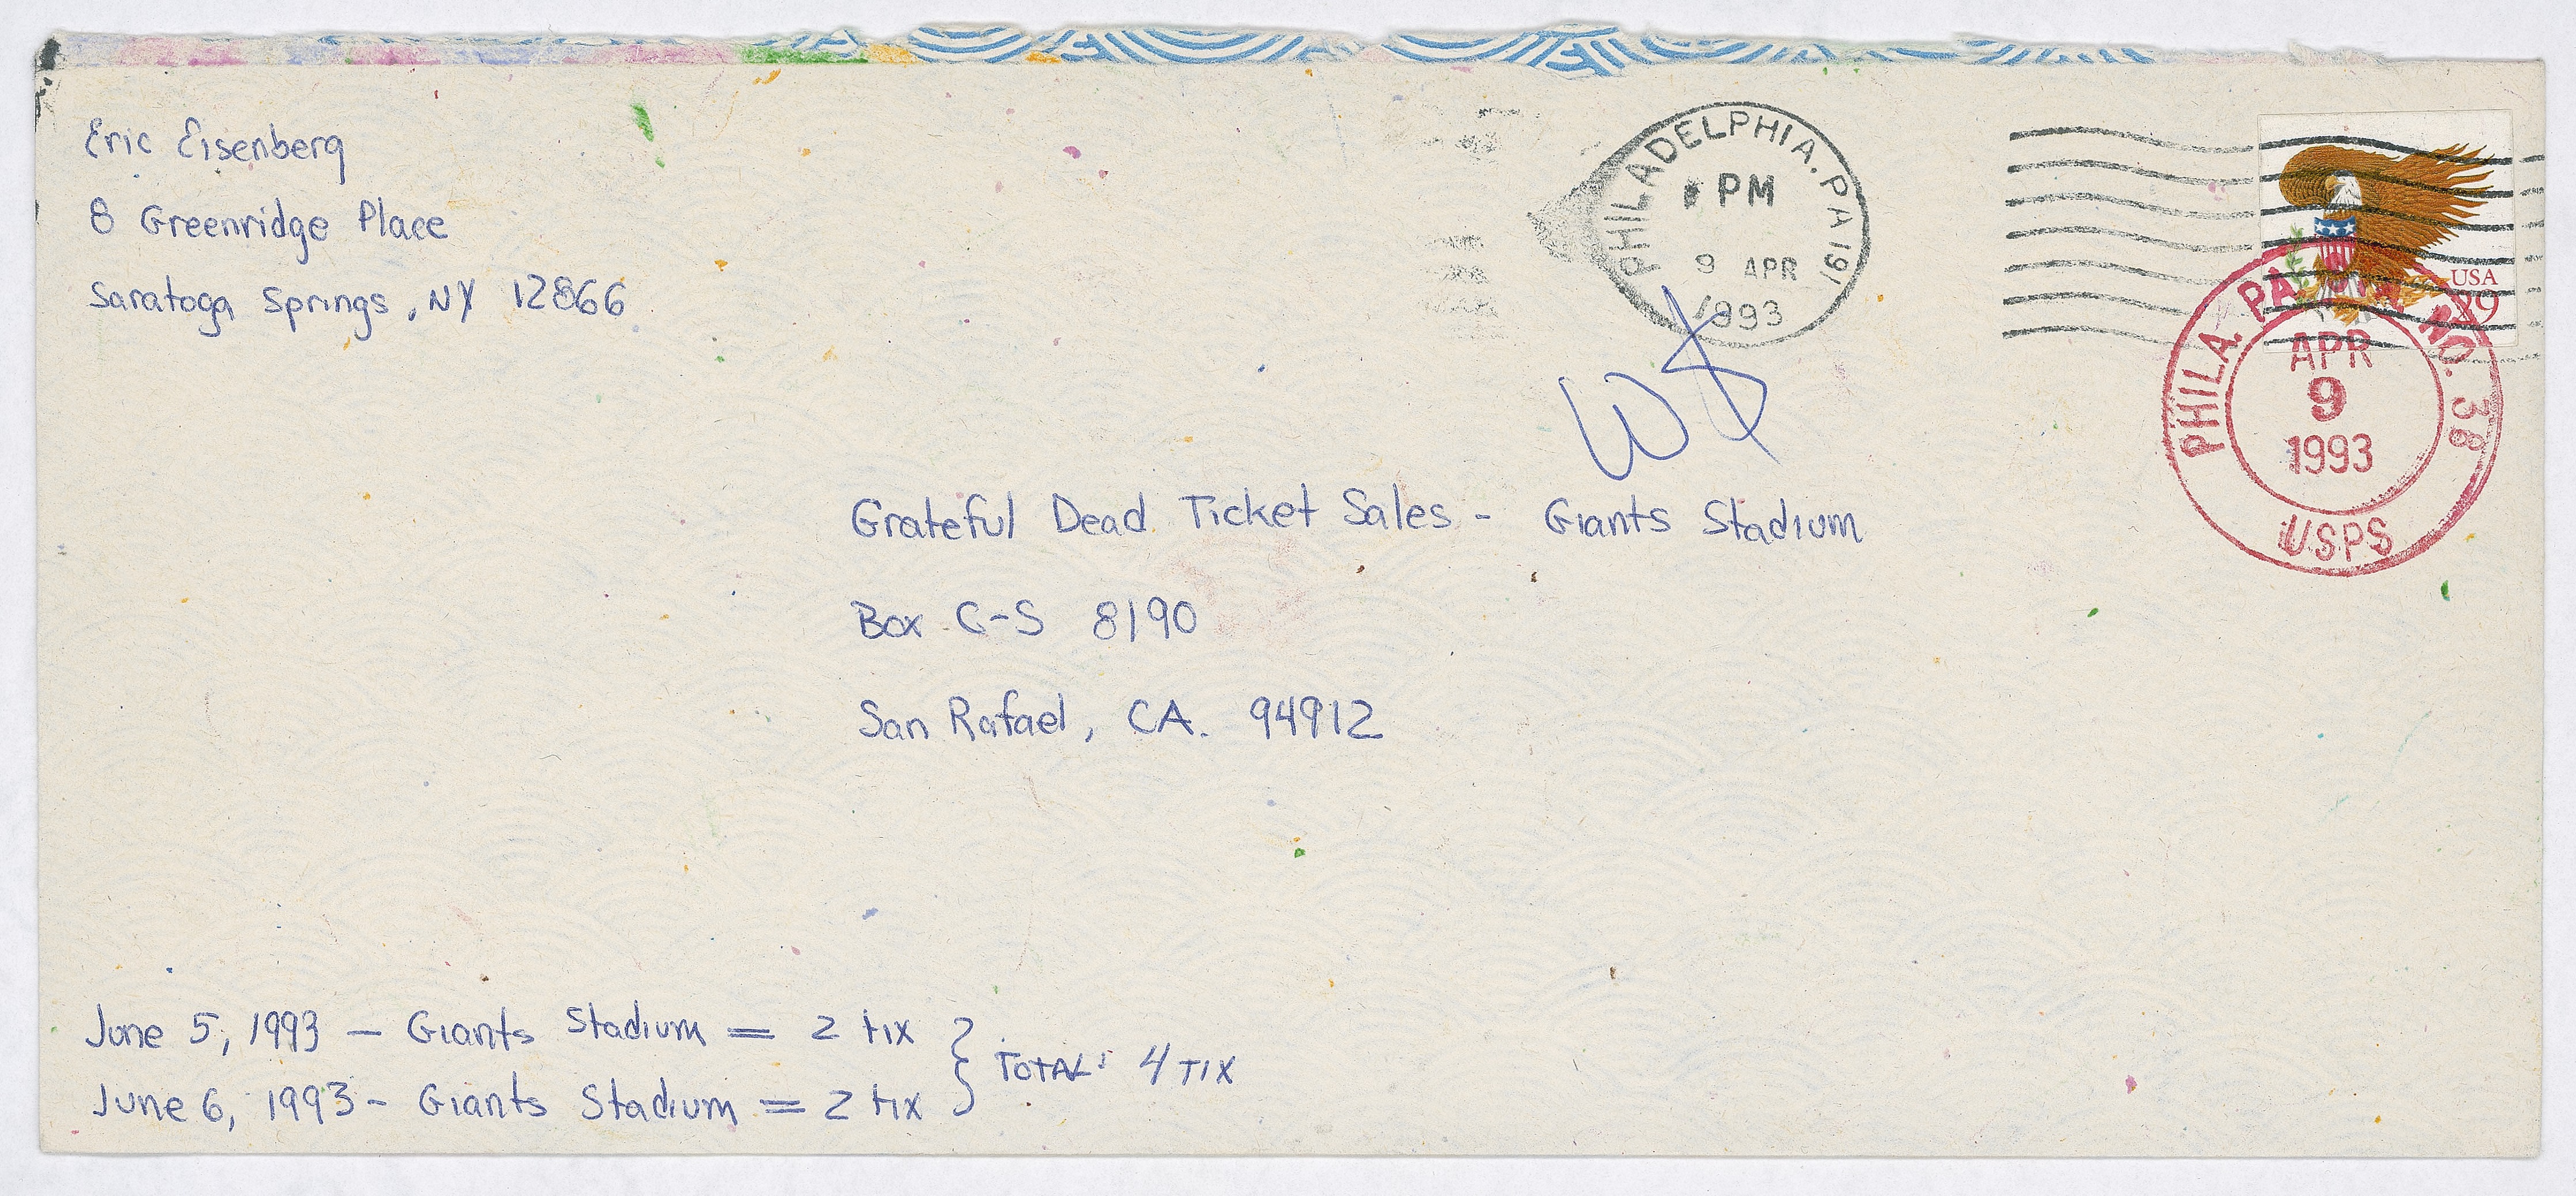 Eric Eisenberg
8 Greenridge Place
Saratoga Springs, NY 12866
PHILADELPHIA. PA 191
PM
9 APR
1993
USA
PHILA. PA NO. 38
APR
9
1993
USPS
W
Grateful Dead Ticket Sales - Giants Stadium
Box C-S 8190
San Rafael, CA. 94912
June 5, 1993 — Giants Stadium = 2 tix
June 6, 1993 - Giants Stadium = 2 tix
TOTAL: 4 TIX